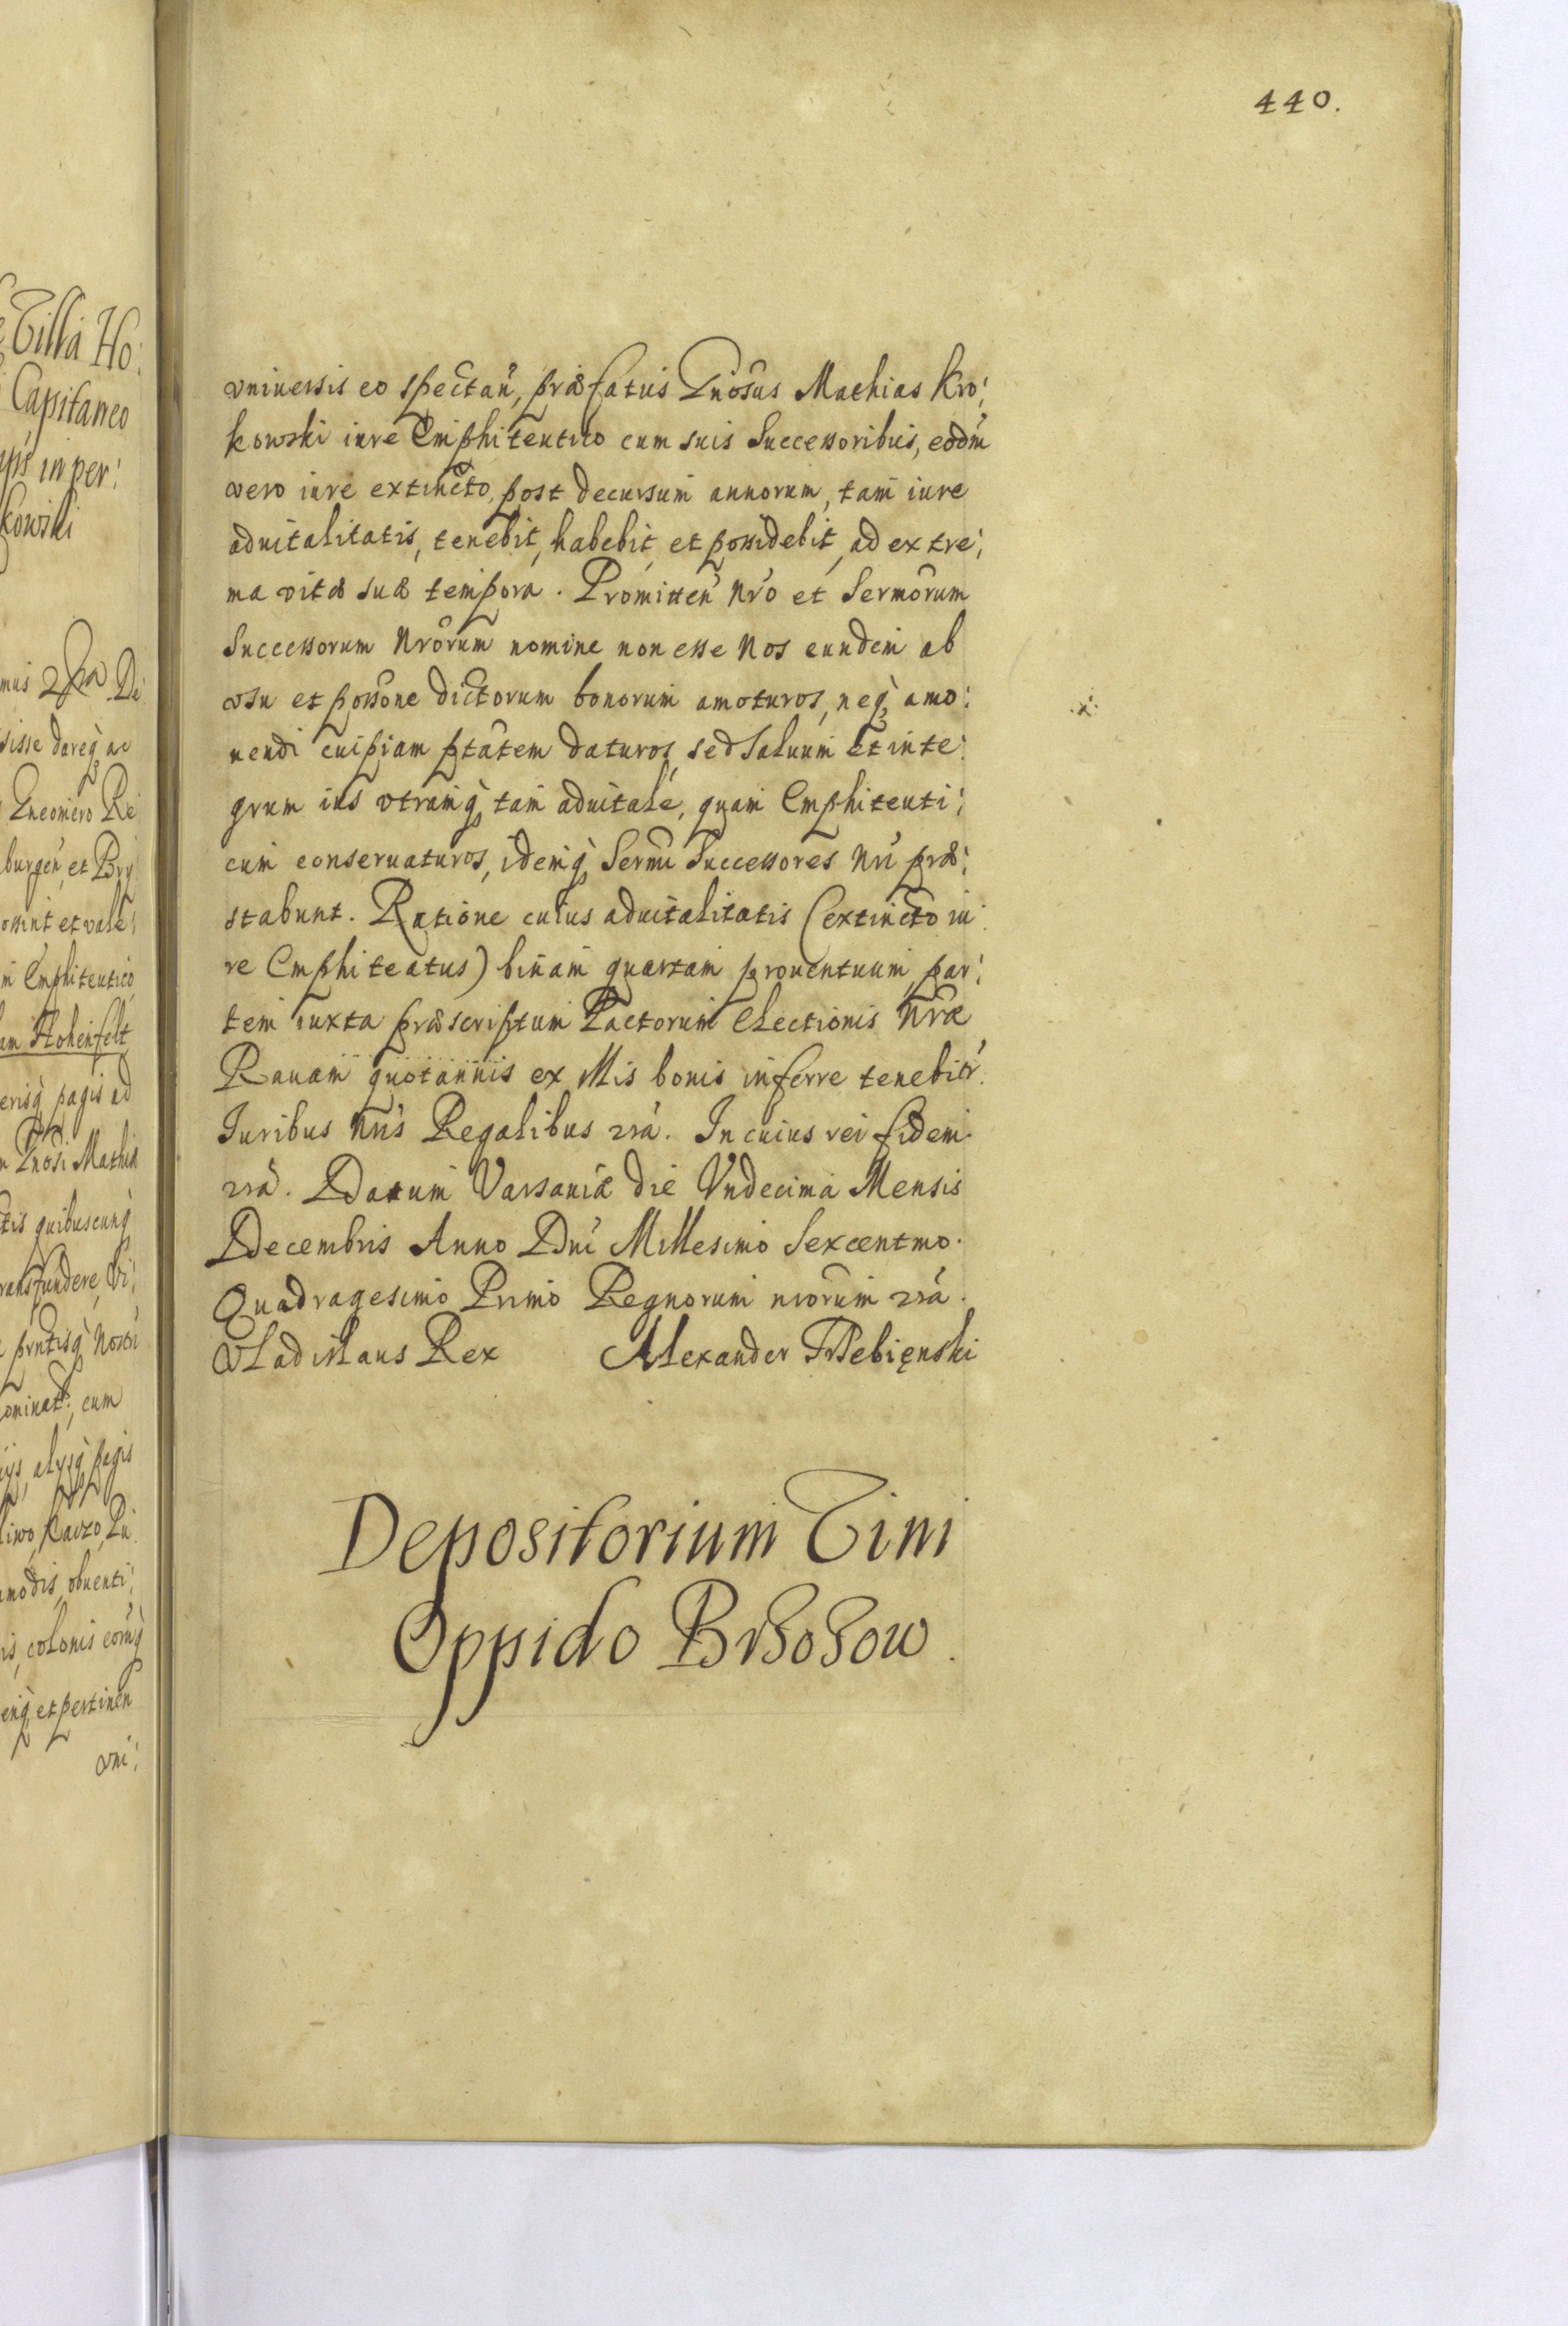 440.
vniuersis eo spectań, præfatus Gnosus Mathias Kro:
kowski iure Emphiteutico cum suis Successoribus, eodm
vero iure extincto, post decursum annorum, tam iure
aduitalitatis, tenebit, habebit, et possidebit, ad extre:
ma vitæ suæ tempora. Promitteń Nro et Sermorum
Successorum Nrorum nomine non esse Nos eundem ab
vsu et possone dictorum bonorum amoturos, neq́ amo:
uendi cuipiam ptatem daturos, sed Saluum et inte:
grum ius vtrumq́ tam aduitale, quam Emphiteuti:
cum conseruaturos, idemq́ Sermi Successores Nri præ:
stabunt. Ratione cuius aduitalitatis (extincto iu:
re Emphiteatus) binam quartam prouentuum par:
tem iuxta præscriptum Pactorum Electionis Nræ
Rauam quotannis ex illis bonis inferre tenebitr.
Iuribus Nris Regalibus zra. In cuius rei fidem.
zra. Datum Varsauiæ die Vndecima Mensis
Decembris Anno Dni Millesimo Sexcentmo.
Quadragesimo Primo Regnorum nrorum zra.
Vladislaus Rex Alexander Trzebięnski
Depositorium Vini
Oppido Brzozow.
Villa Ho:
Capitaneo
in per:
kowski
mus zra De
sisse dareq́ ac
Gneomero Re
burgeń, et Brz
ossint et vale:
m Emphiteutico
am Hohenfelt
erisq́ pagis ad
Gnosi Mathiæ
tis quibuscunq́
ransfundere, Vi:
prntisq́ Nostri
ominat:, cum
ijs, alysq́ pagis
liwo, Karzo, Pu:
modis, obuenti:
is, colonis eorumq́
enq́ et pertinen
vni: